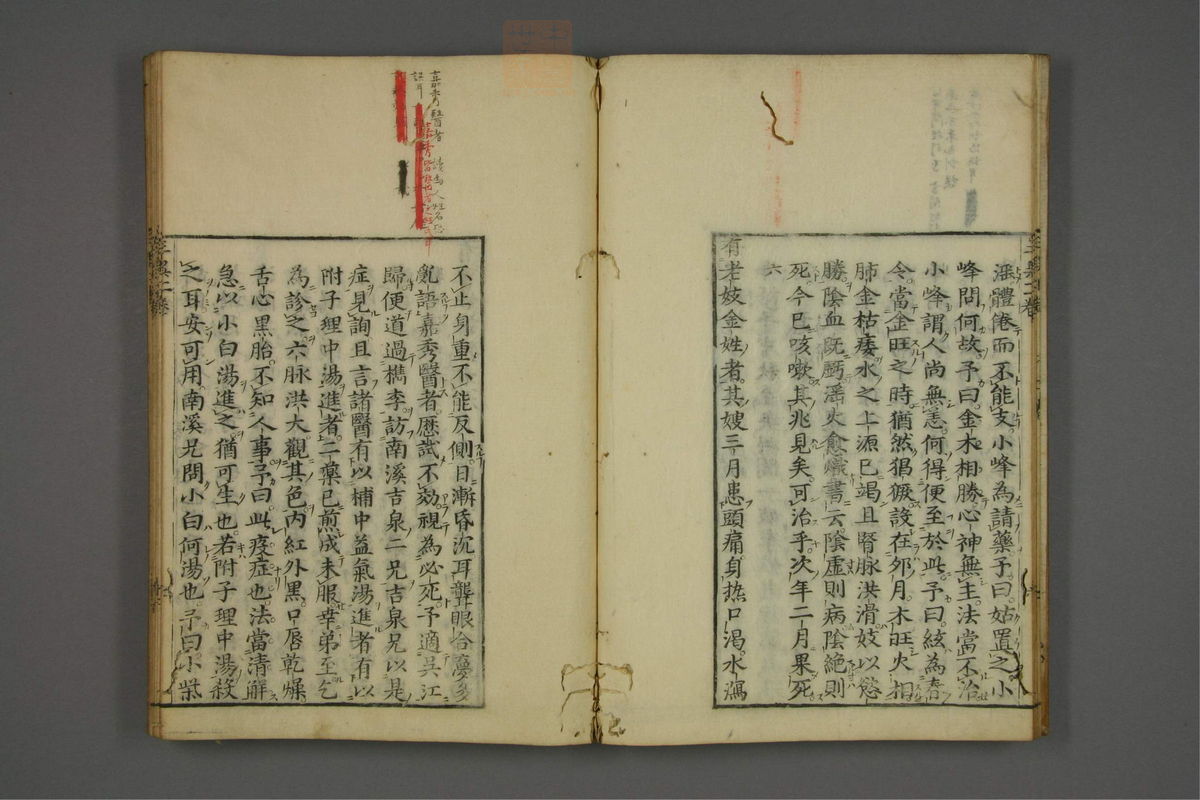 滛體倦而不能支小峰為請藥予曰姑置之小
峰問何故予曰金木相勝心神無主法當不治
小峰謂人尚無恙何得便至於此予曰絃為春
令當金旺之時猶然猖獗設在夘月木旺火相
肺金枯痿水之上源已竭且腎脉洪滑妓以慾
勝陰血既虧滛火愈熾書云陰虛則病陰絶則
死今已咳嗽其兆見矣可治乎次年二月果死
有老妓金姓者其嫂三月患頭痛身熱口渴水瀉
不止身重不能反側日漸昏沉耳聾眼合夢多
亂語嘉秀醫者歷試不効視為必死予適吳江
歸便道過檇李訪南溪吉泉二兄吉泉兄以是
症見詢且言諸醫有以補中益氣湯進者有以
附子理中湯進者二藥已煎成未服幸弟至乞
為診之六脉洪大觀其色内紅外黑口唇乾燥
舌心黑胎不知人事予曰此疫症也法當清解
急以小白湯進之猶可生也若附子理中湯殺
之耳安可用南溪兄問小白何湯也予曰小柴